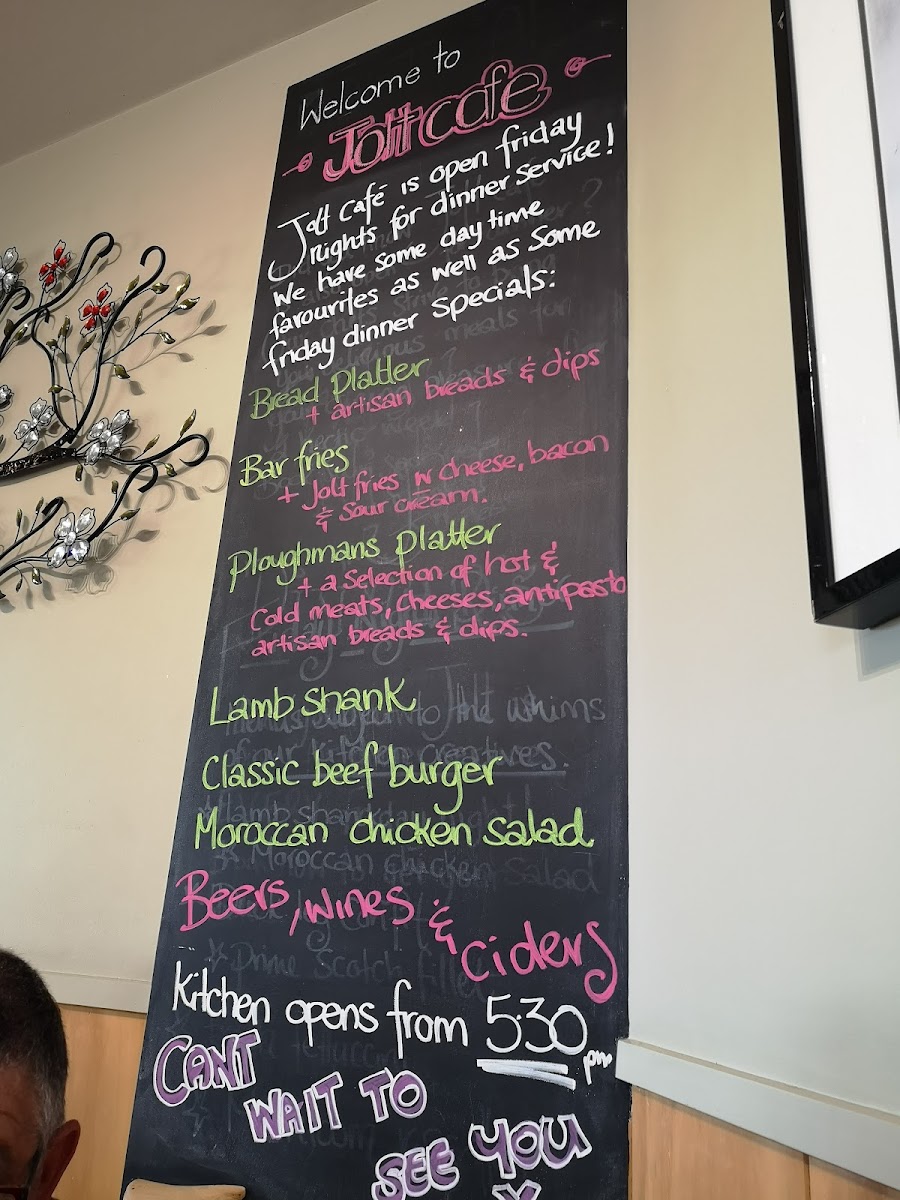 Welcome to
Jolt cafe
Jolt Café is open friday
nights for dinner service!
We have some day time
favourites as well as some
friday dinner specials:
Bread Platter
+ artisan breads & dips
Bar fries
+ Jolt fries w cheese, bacon
& sour cream.
Ploughmans platter
+ a selection of hot &
cold meats, cheeses, antipasto
artisan breads & dips.
Lamb shank
Classic beef burger
Moroccan chicken salad
Beers, wines &
ciders
Kitchen opens from 5:30
pm
CANT
WAIT TO
SEE YOU
X